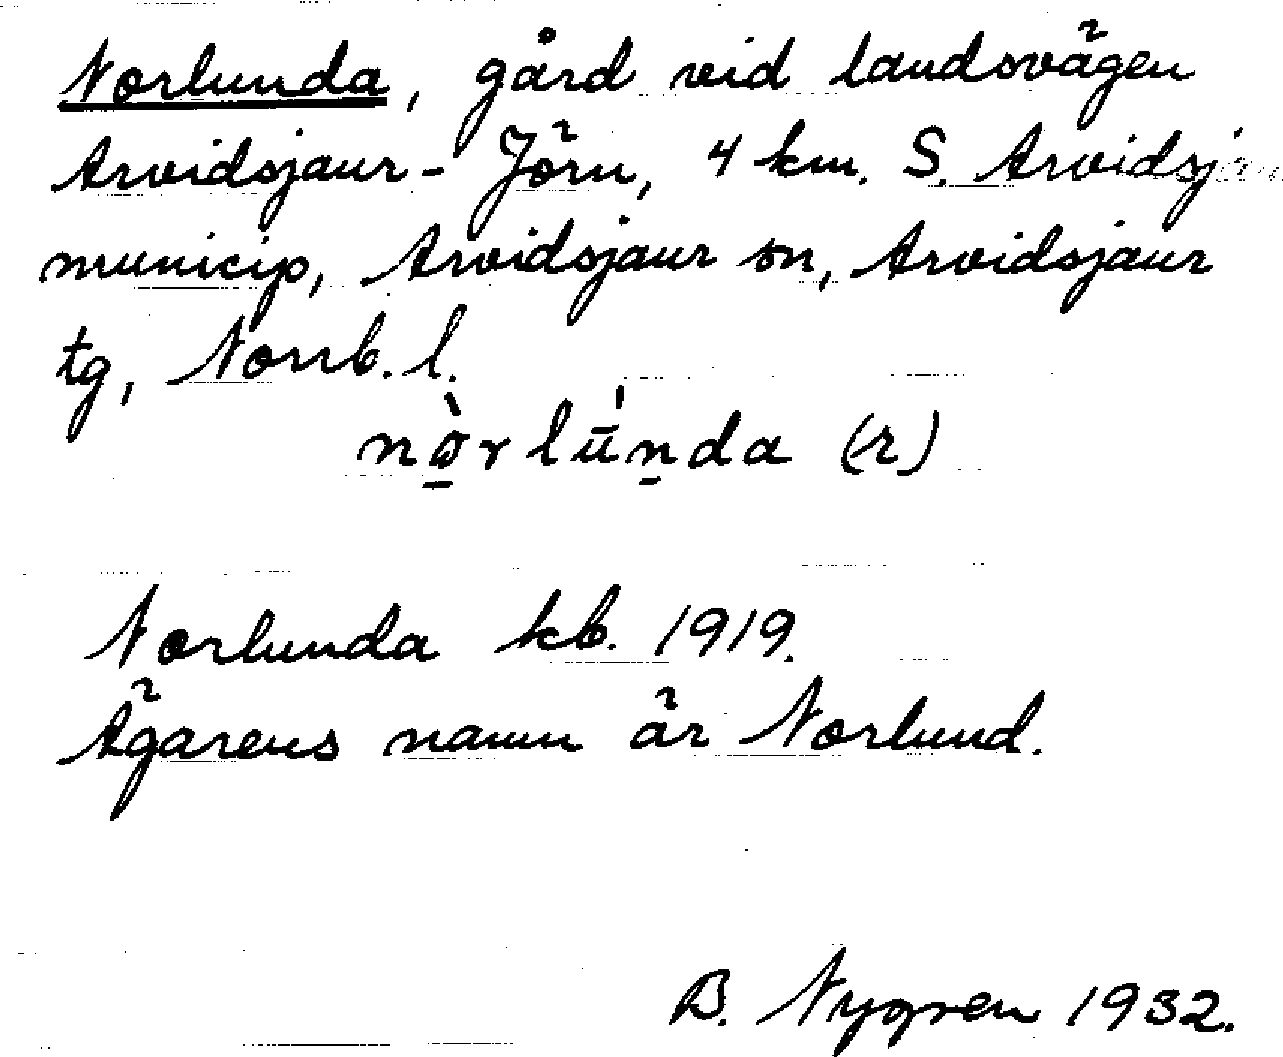 Norlunda, gård vid landsvägen
Arvidsjaur - Jörn, 4 km. S. Arvidsjaur
municip, Arvidsjaur sn, Arvidsjaur
tg, Norrb. l.
nò̱rlū́ṉda (r)
Norlunda kb. 1919.
Ägarens namn är Norlund.
B. Nygren 1932.